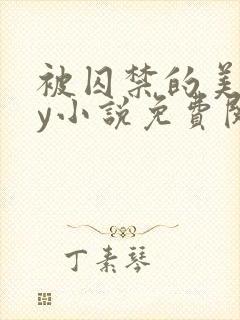 被囚禁的美
y小說免費
丁素琴